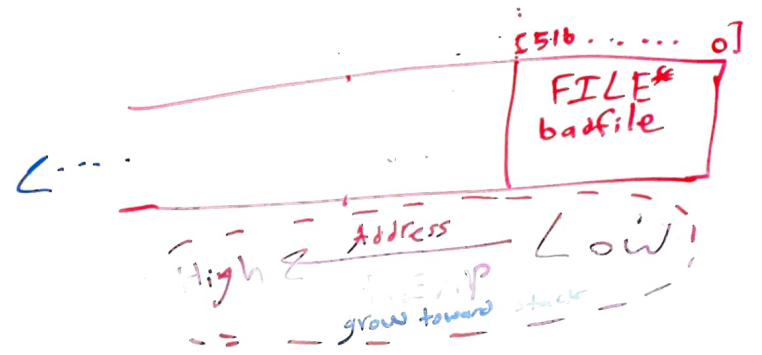 [516 ...... 0]
FILE*
badfile
Address
High < Low
grow toward stack